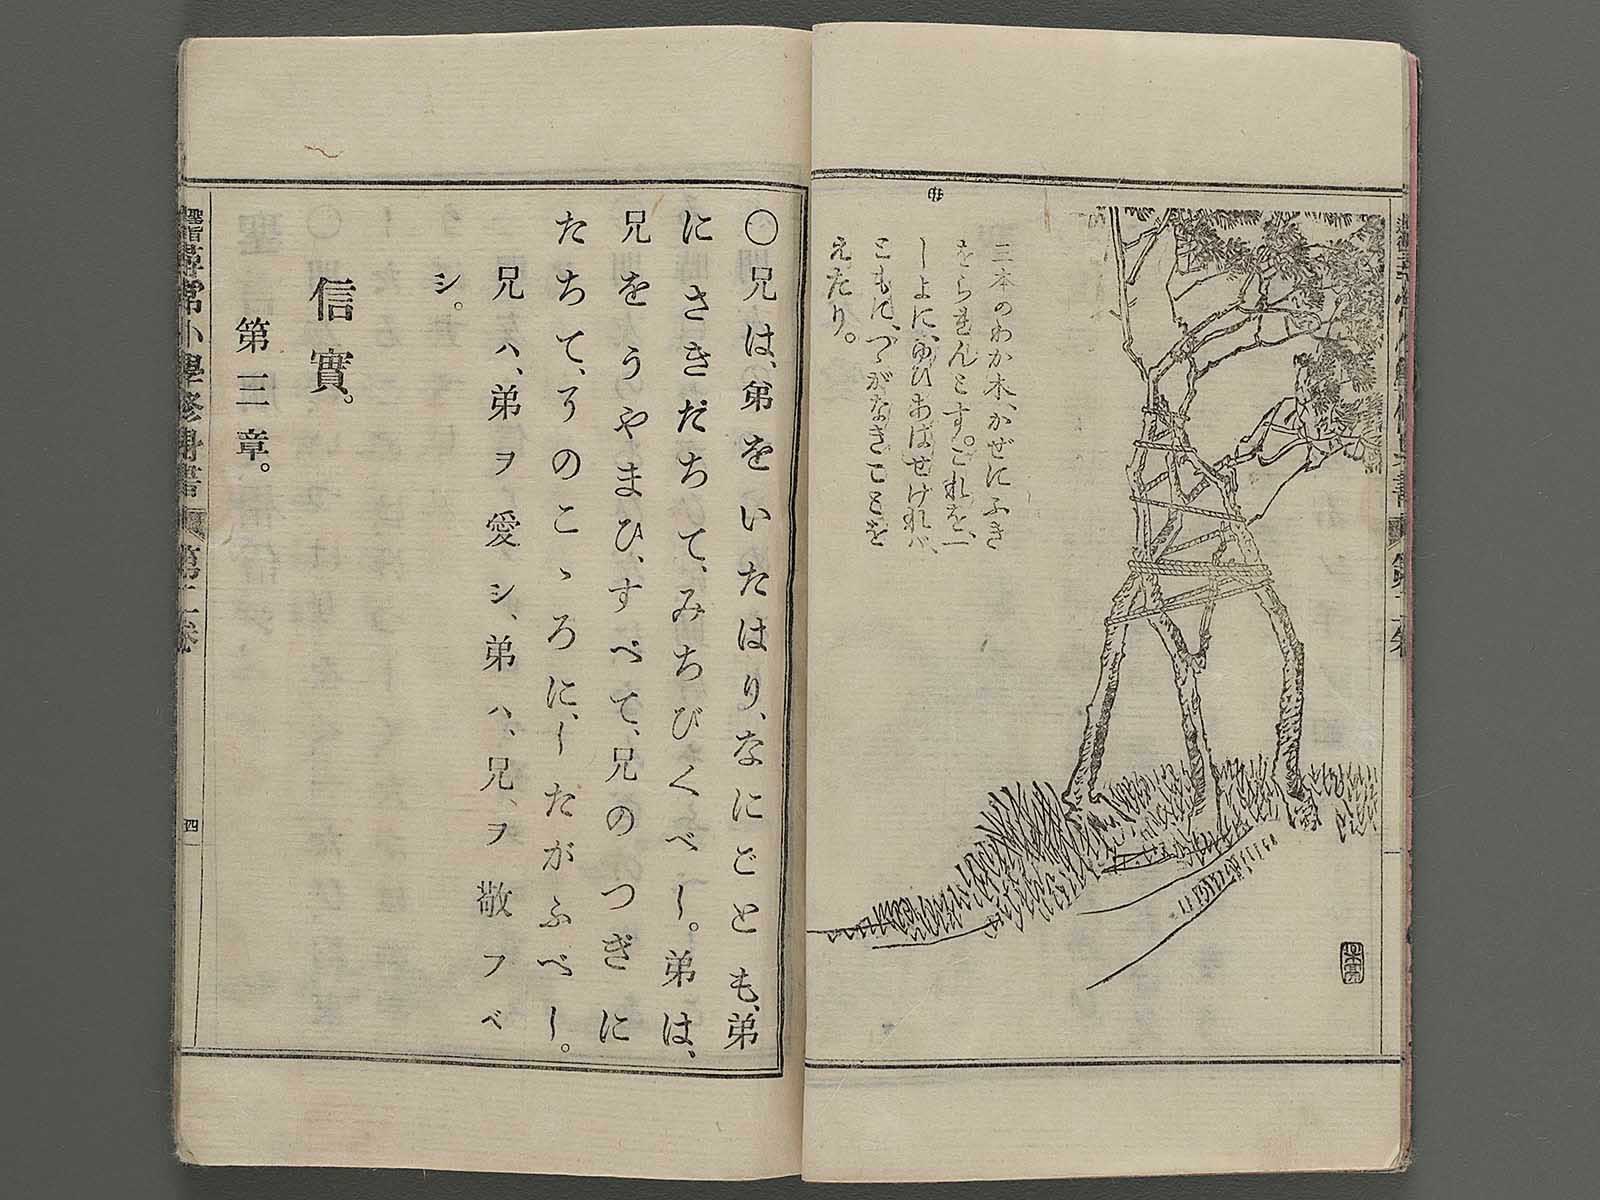 三本のわか木、かぜにふき
をられんとす。これを、一
しよに、ゆひあはせければ、
ともに、つゝがなきことを
えたり。
〇兄は、弟をいたはり、なにごとも、弟
にさきだちて、みちびくべし。弟は、
兄をうやまひ、すべて、兄のつぎに
たちて、そのこゝろに、したがふべし。
兄ハ、弟ヲ愛シ、弟ハ、兄ヲ敬フベ
シ。
信實。
第三章。
尋常小學修身書 第二卷
四